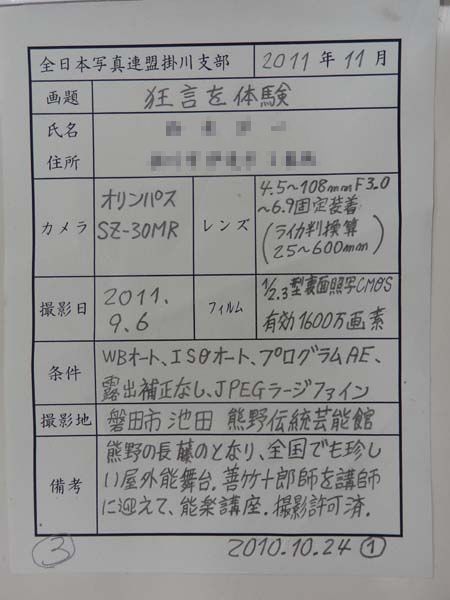 全日本写真連盟掛川支部 2011年11月
画題 狂言を体験
氏名
住所
カメラ オリンパス SZ-30MR
レンズ 4.5~108mm F3.0
~6.9固定装着
(ライカ判換算
25~600mm)
撮影日 2011.
9.6
フィルム 1/2.3型裏面照写CMOS
有効1600万画素
条件 WBオート、ISOオート、プログラムAE、
露出補正なし、JPEGラージファイン
撮影地 磐田市 池田 熊野伝統芸能館
備考 熊野の長藤のとなり、全国でも珍し
い屋外能舞台.善竹十郎師を講師
に迎えて、能楽講座.撮影許可済.
③ 2010.10.24 ①